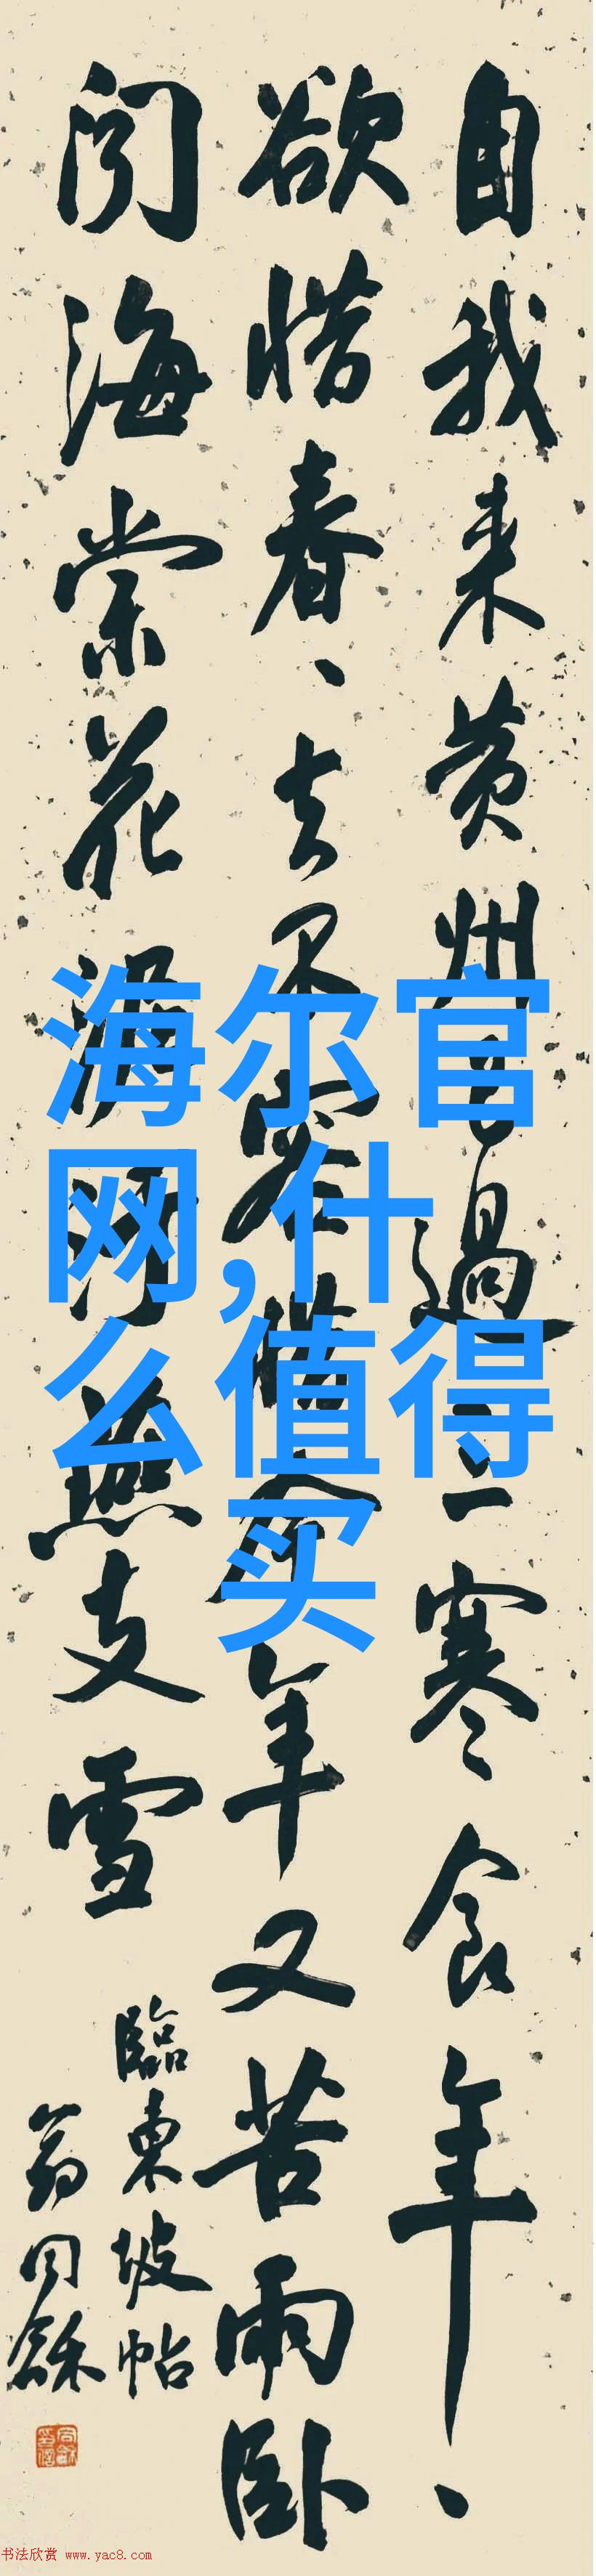 自我来黄州已過三寒食年、
欲惜春、去不容惜今年又苦雨卧
闻海棠花泥汙燕支雪
臨東坡帖
翁同龢
海尔官
网,什
么值得
买
书法欣赏 www.yac8.com